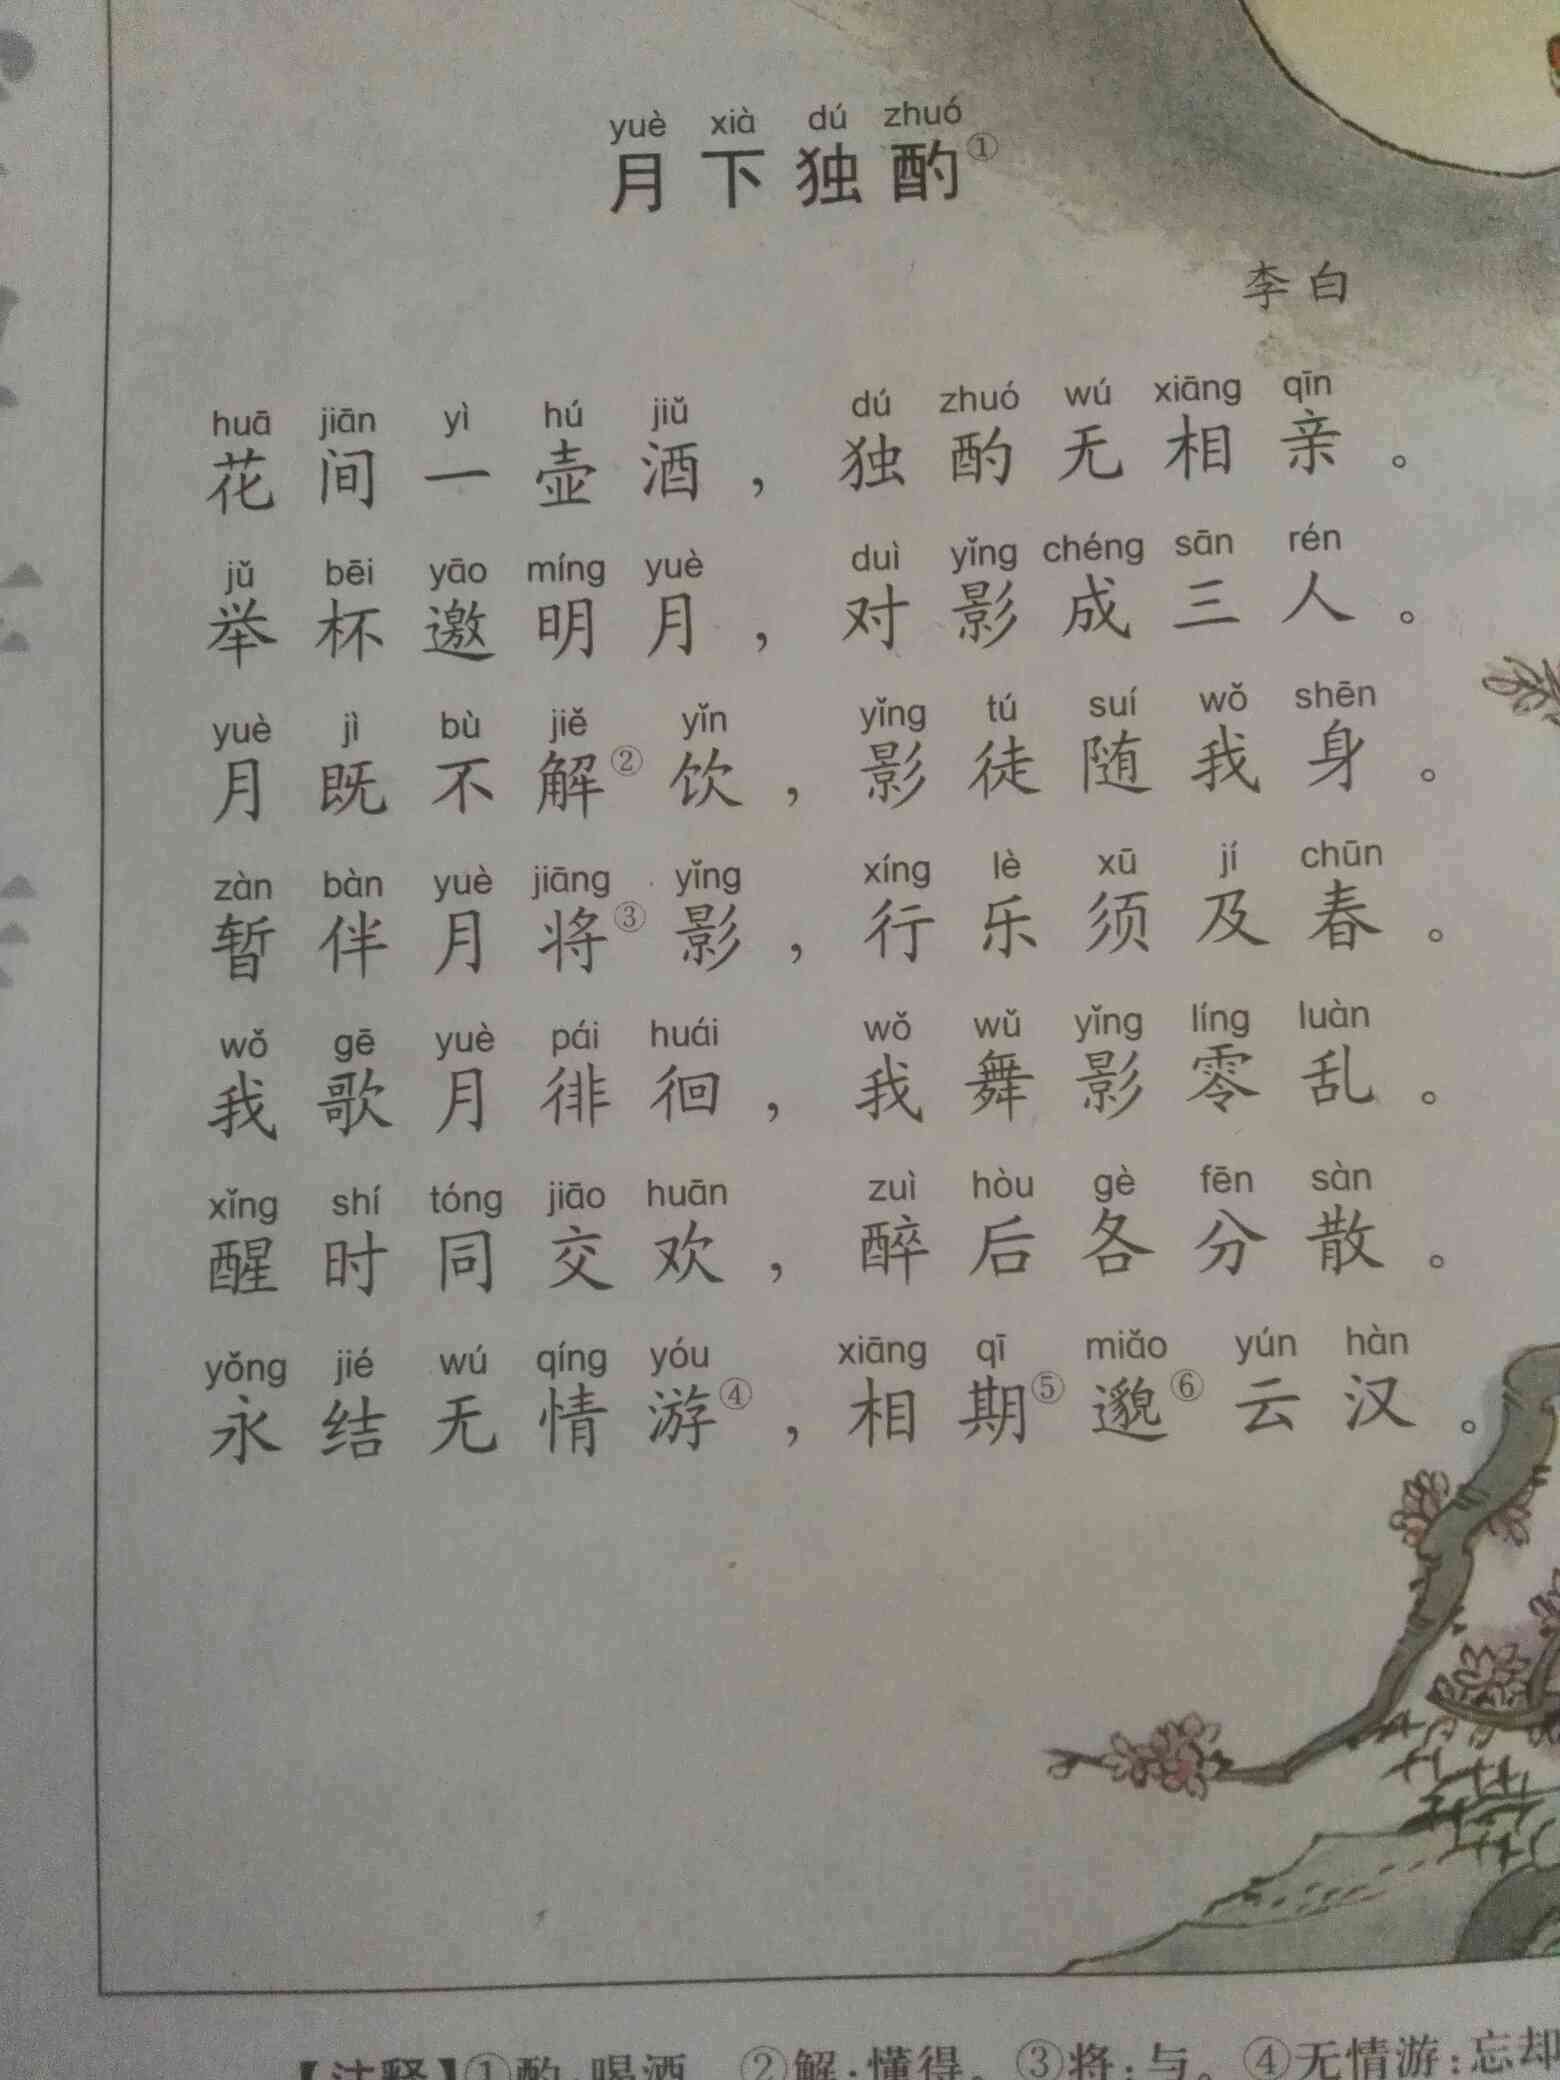 yuè xià dú zhuó
月下独酌①
李白
huā jiān yì hú jiǔ dú zhuó wú xiāng qīn
花间一壶酒，独酌无相亲。
jǔ bēi yāo míng yuè duì yǐng chéng sān rén
举杯邀明月，对影成三人。
yuè jì bù jiě yǐn yǐng tú suí wǒ shēn
月既不解②饮，影徒随我身。
zàn bàn yuè jiāng yǐng xíng lè xū jí chūn
暂伴月将③影，行乐须及春。
wǒ gē yuè pái huái wǒ wǔ yǐng líng luàn
我歌月徘徊，我舞影零乱。
xǐng shí tóng jiāo huān zuì hòu gè fēn sàn
醒时同交欢，醉后各分散。
yǒng jié wú qíng yóu xiāng qī miǎo yún hàn
永结无情游④，相期⑤邈⑥云汉。
【注释】①酌:喝酒。②解:懂得。③将:与。④无情游:忘却